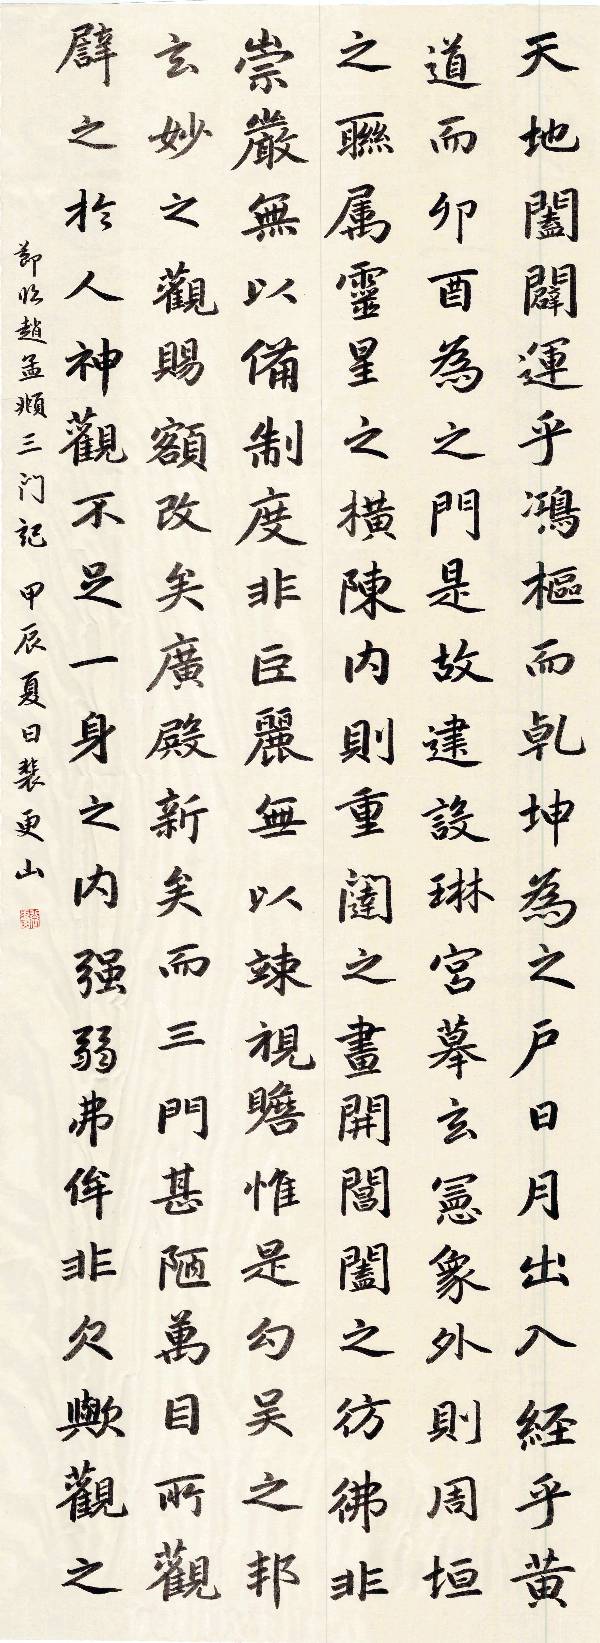 天地闔闢運乎鴻樞而乹坤為之戶日月出入経乎黄
道而卯酉為之門是故建設琳宮摹玄憲象外則周垣
之聮属靈星之横陳内則重闥之畫開閶闔之彷彿非
崇嚴無以備制度非巨麗無以竦視瞻惟是勾吴之邦
玄妙之觀賜額改矣廣殿新矣而三門甚陋萬目所觀
譬之於人神觀不足一身之内强弱弗侔非欠歟觀之
節临趙孟頫三门記 甲辰夏日裴更山